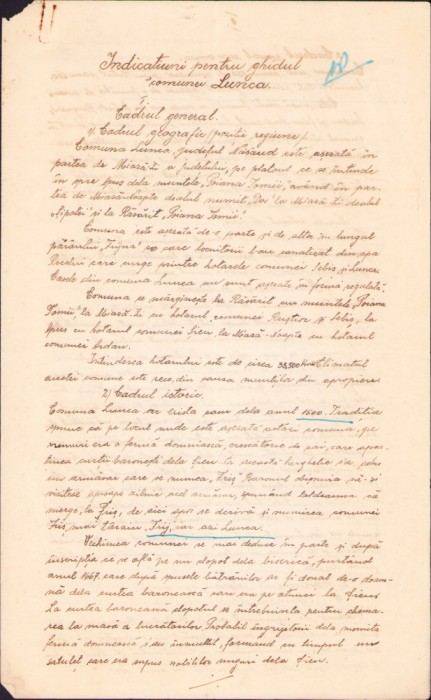 Indicatiuni pentru ghidul
comunei Lunca.
I.
Cadrul general.
1) Cadrul geografic (poziție, regiune)
Comuna Lunca, județul Năsăud este așezată în
partea de Miază-zi a județului, pe platoul ce se întinde
în spre Apus dela muntele „Poiana Tomii”, având în par-
tea de Miază-Noapte dealul numit la Miază-zi dealul
„Țipotei” și la Răsărit „Poiana Tomii”.
Comuna este așezată de-o parte și de alta în lungul
părăului pe care locuitorii l-au canalizat din apa
care curge printre hotarele comunei Sebiș și Lunca.
Casele din comuna Lunca nu sunt așezate în formă regulată.
Comuna se mărginește la Răsărit cu muntele „Poiana
Tomii”, la Miază-zi cu hotarul comunei Ruștior și Sebiș, la
Apus cu hotarul comunei Șieu, la Miază-Noapte cu hotarul
comunei Ardan.
Întinderea hotarului este de circa Climatul
acestei comune este rece, din cauza munților din apropiere
2) Cadrul istoric.
Comuna Lunca ar exista cam dela anul 1500. Tradiția
spune că pe locul unde este așezată astăzi comuna, pe
vremuri era o fermă domnească, crescătorie de cai, care apar-
ținea curții baronești dela Șieu la această herghelie se
un armăsar care se numea „Friș”. Baronul obișnuia să-și
viziteze zilnic acel armăsar, spunând totdeauna că
merge la Friș, de aici apoi se derivă și numirea comunei
Friș, mai târziu Frij, iar azi Lunca.
Vechimea comunei se mai deduce în parte și după
inscripția ce se află pe un clopot dela biserică, purtând
anul care după spusele bătrânilor ar fi donat de-o doam-
nă dela curtea baronească care era pe atunci la Șieu.
La curtea baronească clopotul se întrebuința pentru chema-
rea la masă a lucrătorilor. Probabil îngrijitorii dela numita
fermă domnească s'au înmulțit, formând cu timpul un
sătuleț care era supus nobililor unguri dela Șieu.